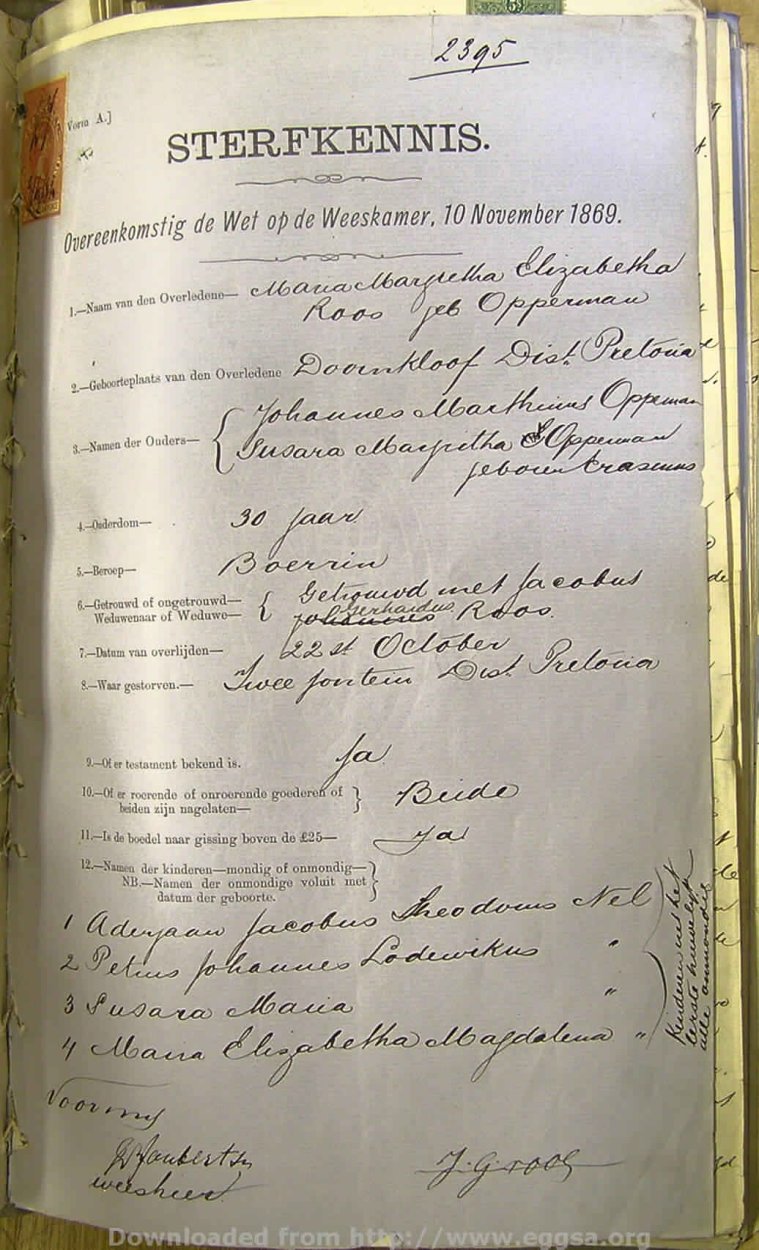 2395
Vorm A.]
STERFKENNIS.
Overeenkomstig de Wet op de Weeskamer, 10 November 1869.
1.—Naam van den Overledene— Maria Margretha Elizabetha
Roos geb Opperman
2.—Geboorteplaats van den Overledene Doornkloof Dist. Pretoria
3.—Namen der Ouders— Johannes Marthinus Opperman
Susara Margritha Opperman
geboren Erasmus
4.—Ouderdom— 30 jaar
5.—Beroep— Boerrin
6.—Getrouwd of ongetrouwd— Getrouwd met Jacobus
Weduwenaar of Weduwe— Johannes Gerhardus Roos.
7.—Datum van overlijden— 22st October
8.—Waar gestorven.— Twee fontein Dist. Pretoria
9.—Of er testament bekend is. Ja
10.—Of er roerende of onroerende goederen of
beiden zijn nagelaten— Beide
11.—Is de boedel naar gissing boven de £25— Ja
12.—Namen der kinderen—mondig of onmondig—
NB.—Namen der onmondige voluit met
datum der geboorte.
1 Aderjaan Jacobus Theodorus Nel
2 Petrus Johannes Lodewikus "
3 Susara Maria "
4 Maria Elizabetha Magdalena "
Kinderen uit het
eerste huwelyk
alle onmondig
Voor my
Joubert
weesheer
J. G. Roos
Downloaded from http://www.eggsa.org